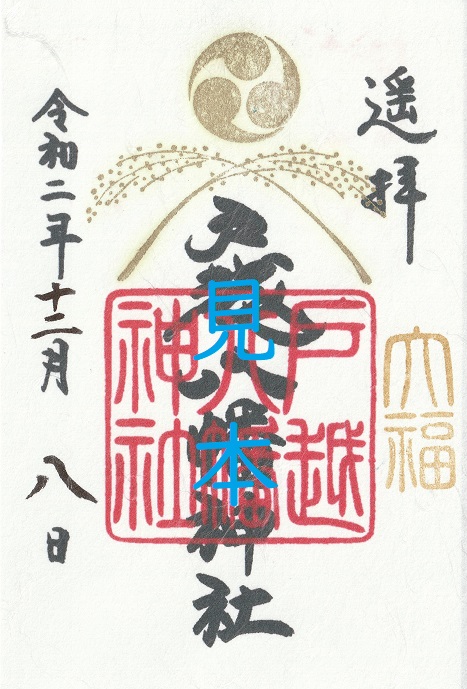 遥拝
大福
戸越八幡神社
戸越
八幡
神社
見本
令和二年十二月 八日